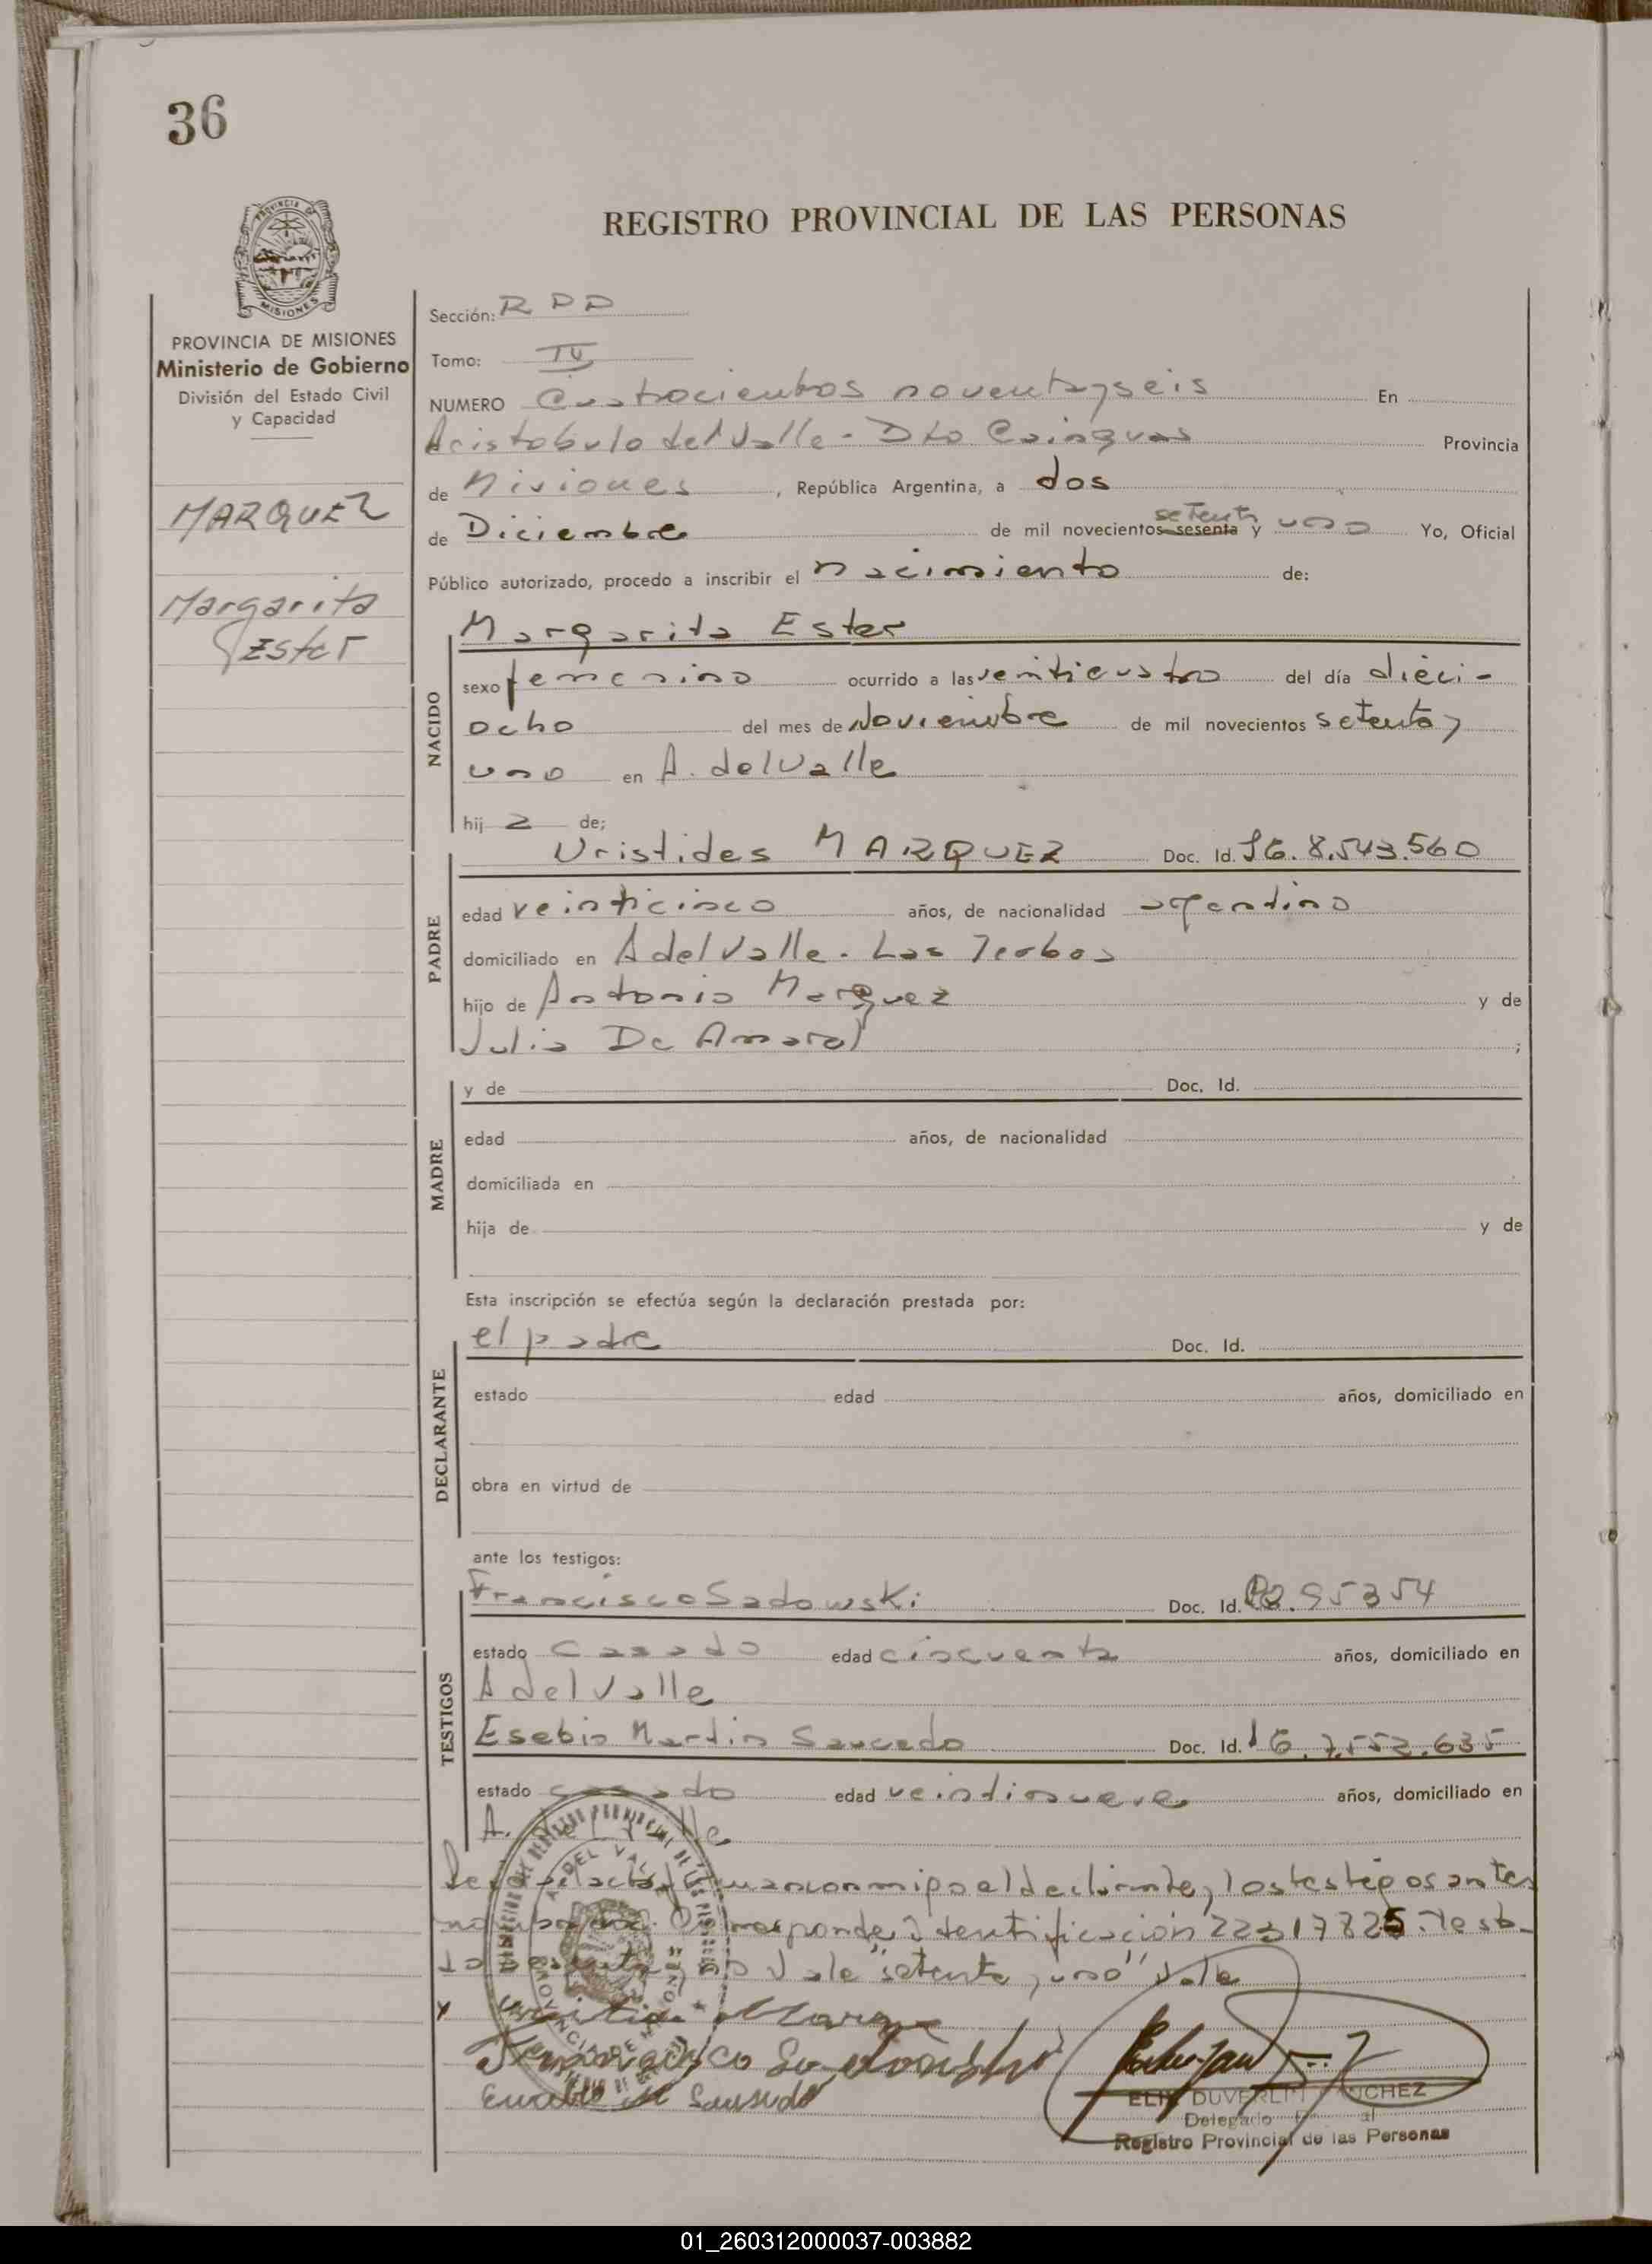 36
REGISTRO PROVINCIAL DE LAS PERSONAS
PROVINCIA DE MISIONES
Ministerio de Gobierno
División del Estado Civil
y Capacidad
MARQUEZ
Margarita
Ester
Sección:
Tomo: IV
NUMERO Cuatrocientos noventa y seis En
Aristobulo del Valle - Dto Cainguas Provincia
de Misiones, República Argentina, a dos
de Diciembre de mil novecientos sesenta setenta y uno Yo, Oficial
Público autorizado, procedo a inscribir el nacimiento de:
NACIDO
Margarita Ester
sexo femenino ocurrido a las veinticuatro del día dieci-
ocho del mes de Noviembre de mil novecientos setenta y
uno en A. del Valle
hij a de;
PADRE
Uristides MARQUEZ Doc. Id. 8.543.560
edad veinticinco años, de nacionalidad argentino
domiciliado en A del Valle - Las Yerbas
hijo de Antonio Marquez y de
Julia De Amaral ;
MADRE
y de Doc. Id.
edad años, de nacionalidad
domiciliada en
hija de y de
Esta inscripción se efectúa según la declaración prestada por:
DECLARANTE
el padre Doc. Id.
estado edad años, domiciliado en
obra en virtud de
ante los testigos:
TESTIGOS
Francisco Sadowski Doc. Id.
estado casado edad cincuenta años, domiciliado en
A del Valle
Esebio Martin Saucedo Doc. Id. 7.552.635
estado casado edad veintinueve años, domiciliado en
A. del Valle
Leida el acta, firman conmigo el declarante y los testigos antes
Corresponde identificación 22317825. Testa-
do sesenta, no Vale "setenta y uno" Vale
Delegado
Registro Provincial de las Personas
01_260312000037-003882